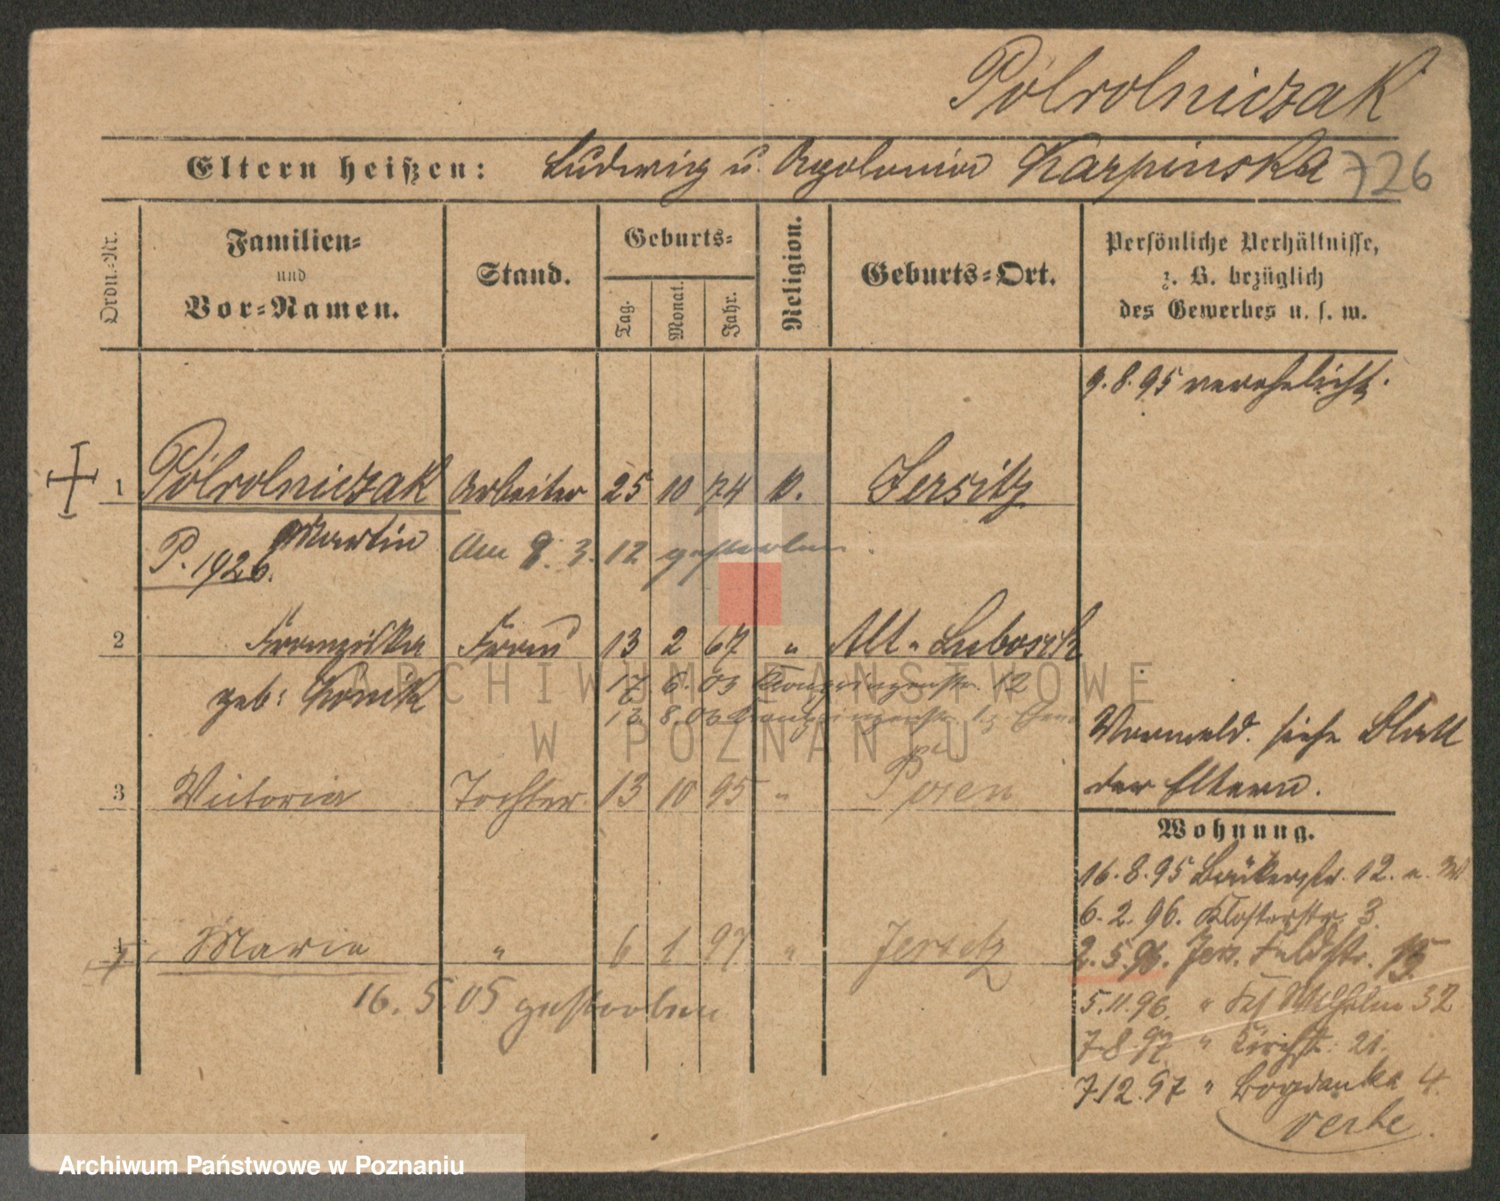 Pólrolniczak
Eltern heißen: Ludwig u. Apolonia Karpinska 726
Ordn.-Nr.
Familien-
und
Vor-Namen.
Stand.
Geburts-
Tag.
Monat.
Jahr.
Religion.
Geburts-Ort.
Persönliche Verhältnisse,
z. B. bezüglich
des Gewerbes u. s. w.
9.8.95 verehelicht.
1 Pólrolniczak Arbeiter 25 10 74 Jersitz
Martin Am 8. 3. 12 gestorben.
P. 1926.
2 Franziska Frau 13 2 67 " Alt-
geb:
17 6. 03 12
13 8. 03
3 Victoria Tochter 13 10 95 " Posen
Vormeld. siehe Blatt
der Eltern.
Wohnung.
16.8.95 Bäckerstr. 12.
6. 2. 96. Klosterstr. 3.
4 Maria " 6 1 97 " Jersitz
2.5.96. Jers. Feldstr. 15
16. 5. 05 gestorben
5.11.96. " Wilhelm 32
7.8.97 " Kirchst. 21.
7.12.97 " Bogdanka 4.
ARCHIWUM PAŃSTWOWE
W POZNANIU
Archiwum Państwowe w Poznaniu